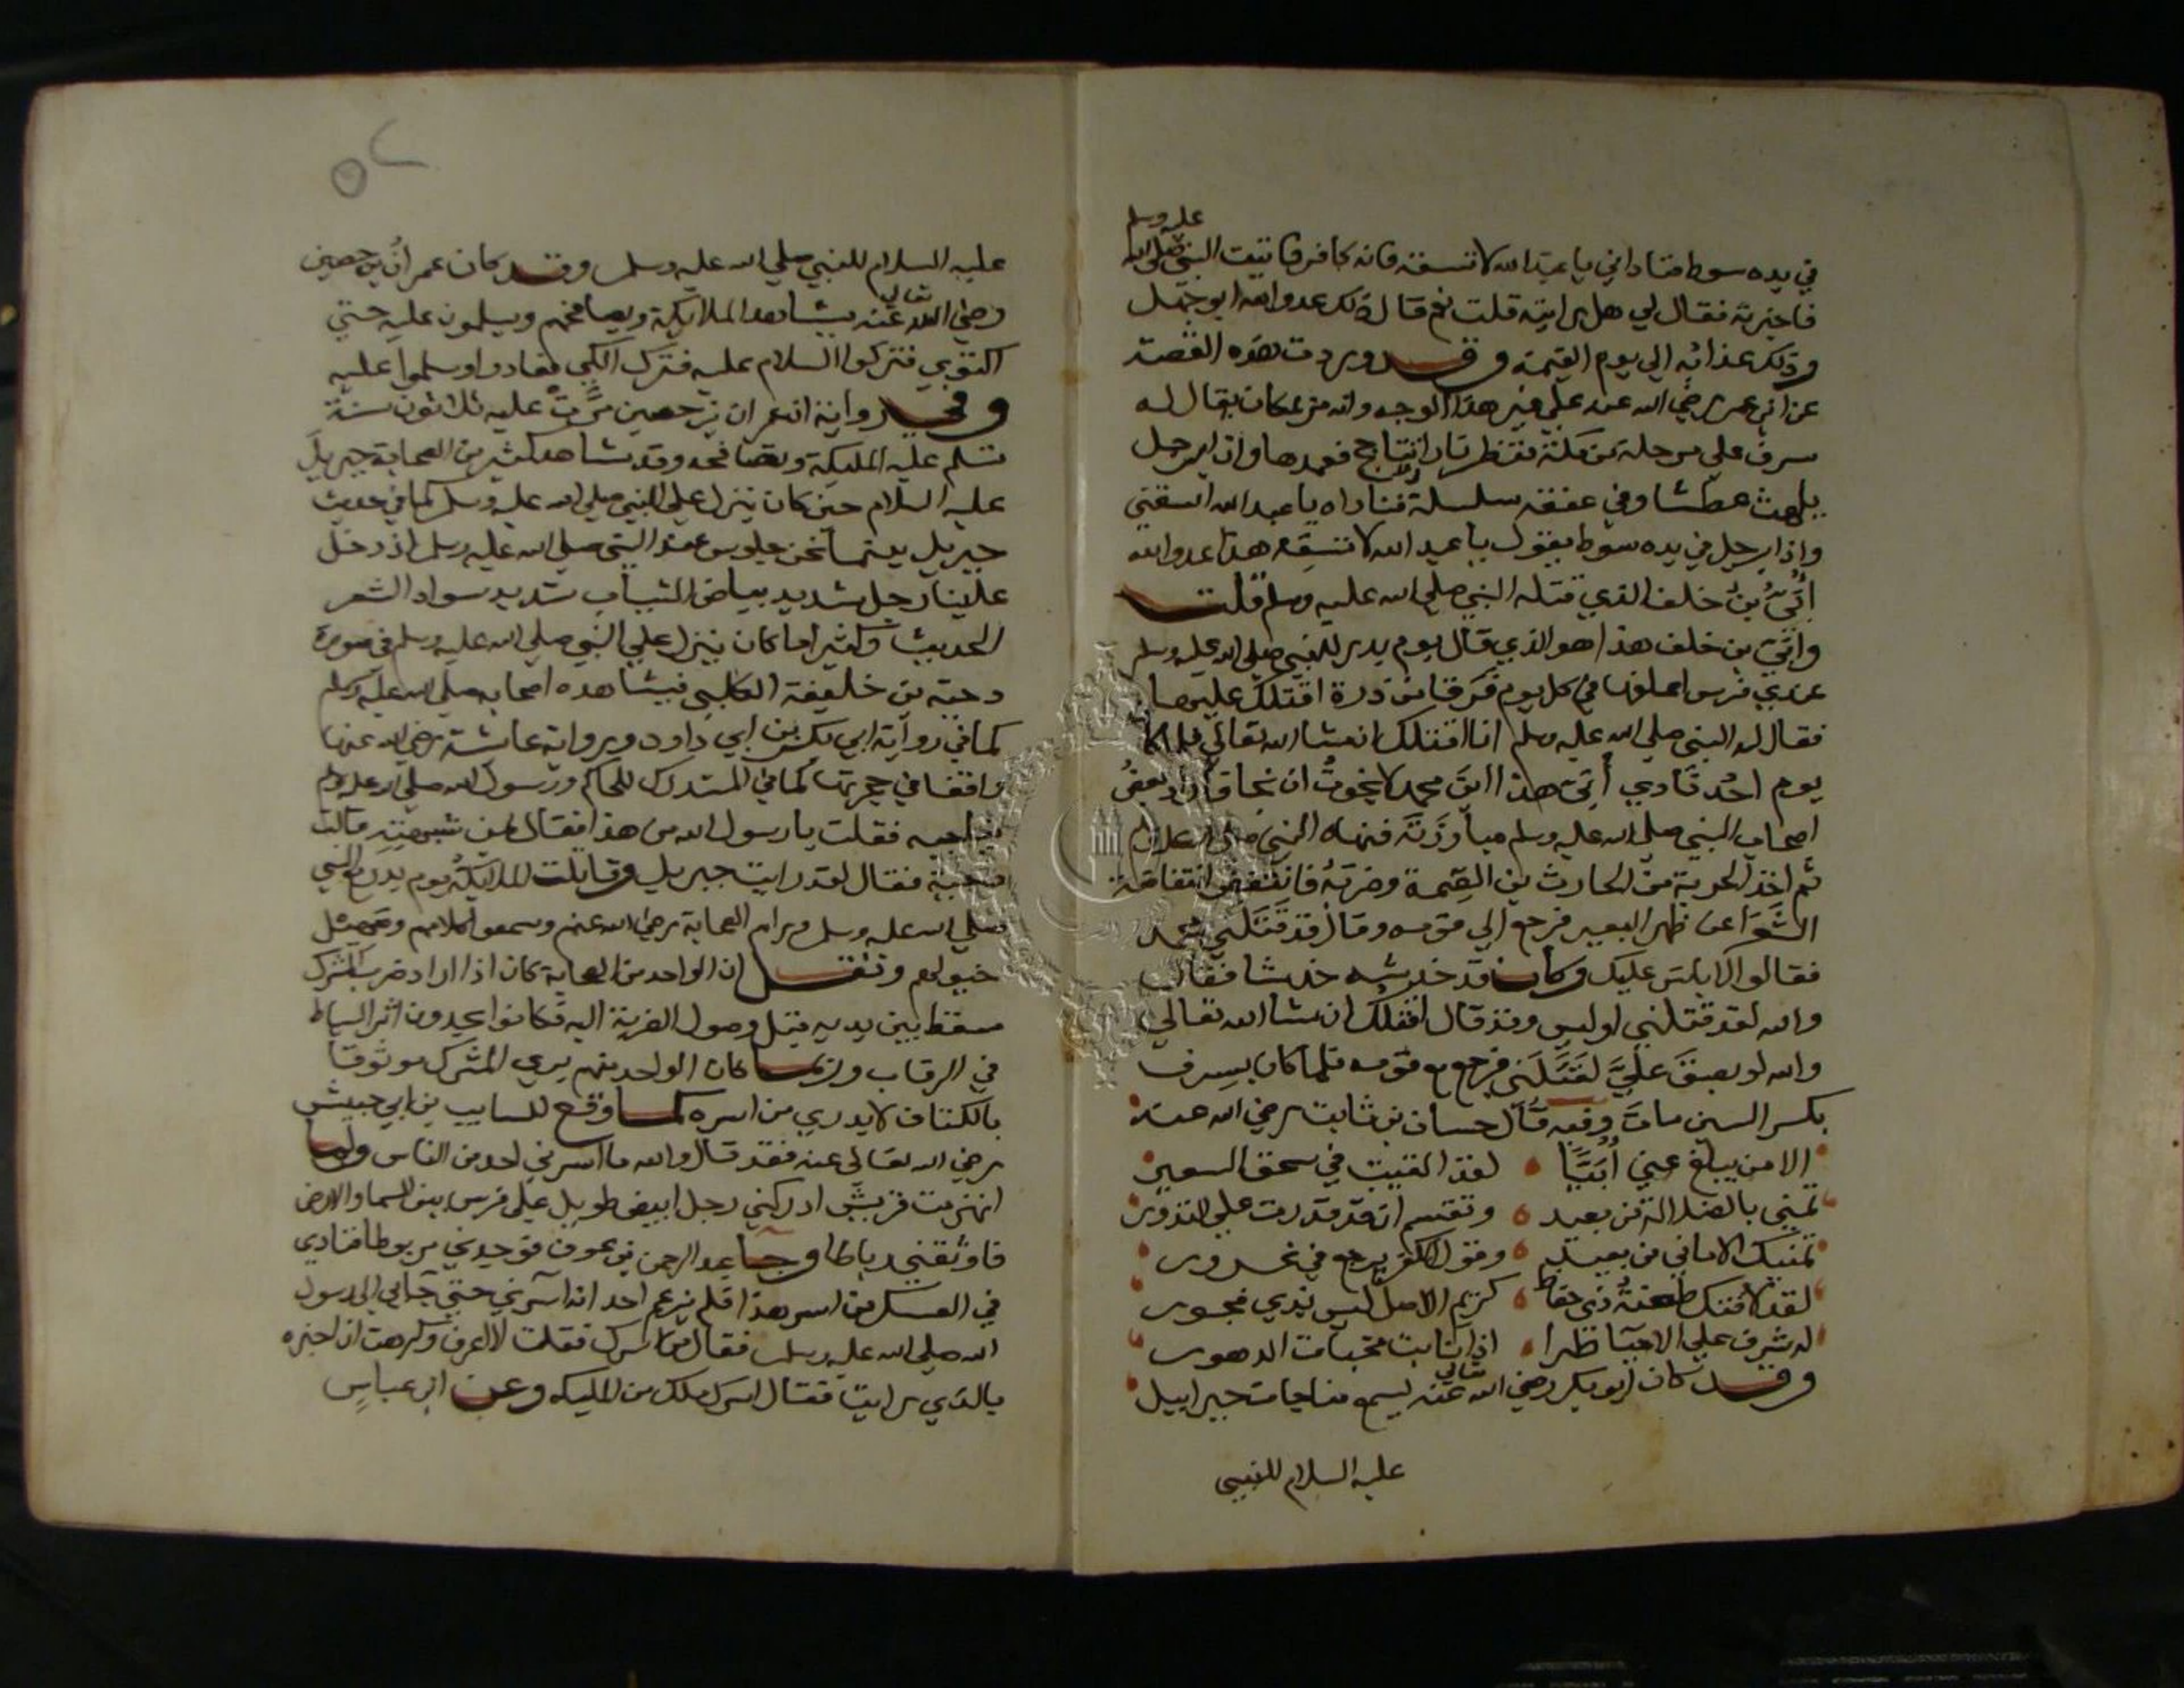 في يده سوط فناداني يا عبد الله لا تسقه فانه كافر فاتيت النبي صلى الله عليه وسلم
فاخبرته فقال لي هل رايته قلت نعم قال ذلك عدو الله ابو جهل
وذلك عذابه الي يوم القيمة وقد وردت هذه القصة
عن ابن عمر رضي الله عنه علي غير هذا الوجه وانه مر بمكان يقال له
سرف علي مرحلة من مكة فنظر نارا تتاجج فعمدها واذا برجل
يلهث عطشا وفي عنقه سلسلة فناداه يا عبد الله اسقني
واذا برجل في يده سوط يقول يا عبد الله لا تسقه هذا عدو الله
أُبَيّ بنُ خلف الذي قتله النبي صلي الله عليه وسلم قلت
وابي بن خلف هذا هو الذي قال يوم بدر للنبي صلي الله عليه وسلم
عندي فرس اعلفها في كل يوم فَرَقا من ذرة اقتلك عليها
فقال له النبي صلي الله عليه وسلم انا اقتلك ان شا الله تعالي فلما كان
يوم احُد نادي أُبيّ هذا اين محمد لا نجوتُ ان نجا فأراد بعضُ
اصحاب النبي صلي الله عليه وسلم مبارزَتَه فنهاه النبي صلي الله عليه وسلم
ثم اخذ الحربة من الحارث بن الصمة وضربَهُ فانتفض انتفاضة
الشَّعَرا عن ظهر البعير فرجع الي قومه وقال قد قَتَلَني محمد
فقالوا لا باس عليك وكان قد خدشه خدشا فقال
والله لقد قتلني اوليس وقد قال اقتلك ان شا الله تعالي
والله لو بصقَ عَلَيَّ لقَتَلَني فرجع مع قومه فلما كان بسرف
بكسر السين مات وفيه قال حسان بن ثابت رضي الله عنه
الا من يبلغ عني أُبَيًّا لقد القيت في سحق السعير
تمني بالضلالة من بعيد وتقسم ان قدرت علي النذور
تمنيك الاماني من بعيد وقول الكفر يرجع في غرور
لقد لاقتك طعنةُ ذي حفاظ كريم الاصل ليس بذي فجور
له شرف علي الاحيا طرا اذا نابت مخبات الدهور
وقد كان ابو بكر رضي الله تعالي عنه يسمع مناجات جبراييل
عليه السلام للنبي
٥٢
عليه السلام للنبي صلي الله عليه وسلم وقد كان عمرانُ بن حصين
رضي الله تعالي عنه يشاهد الملايكة ويصافحهم ويسلمون عليه حتي
اكتوي فتركوا السلام عليه فترك الكي فعادوا وسلموا عليه
وفي رواية ان عمران بن حصين مَرَّتْ عليه ثلاثون سنة
تسلم عليه المليكة وتصافحه وقد شاهد كثير من الصحابة جبريلَ
عليه السلام حين كان ينزل علي النبي صلي الله عليه وسلم كما في حديث
جبريل بينما نحن جلوس عند النبي صلي الله عليه وسلم اذ دخل
علينا رجل شديد بياض الثياب شديد سواد الشعر
الحديث وكثيرا ما كان ينزل علي النبي صلي الله عليه وسلم في صورة
دحية بن خليفة الكلبي فيشاهده اصحابه صلي الله عليه وسلم
كما في رواية ابي بكر بن ابي داود ورواية عايشة رضي الله عنها
واقفا في حجرتها كما في المستدرك للحاكم ورسول الله صلي الله عليه وسلم
يناجيه فقلت يا رسول الله من هذا فقال بمن شبهتيه قالت
بدحية فقال لقد رايت جبريل وقاتلت الملايكةُ يوم بدر مع النبي
صلي الله عليه وسلم وراهم الصحابة رضي الله عنهم وسمعوا كلامهم وصهيل
خيولهم ونقل ان الواحد من الصحابة كان اذا اراد ضرب المشرك
سقط بين يديه قبل وصول الضربة اليه فكانوا يجدون اثر السياط
في الرقاب وربما كان الواحد منهم يري المشرك موثوقا
بالكتاف لا يدري من اسره كما وقع للسايب بن ابي حبيش
رضي الله تعالي عنه فقد قال والله ما اسرني احد من الناس ولما
انهزمت قريش ادركني رجل ابيض طويل علي فرس بين السما والارض
فاوثقني رباطا وجا عبد الرحمن بن عوف فوجدني مربوطا فنادي
في العسكر من اسر هذا فلم يزعم احد انه اسرني حتي جا بي الي رسول
الله صلي الله عليه وسلم فقال من اسرك فقلت لا اعرف وكرهت ان اخبره
بالذي رايت فقال اسرك ملك من المليكه وعن ابن عباسٍ